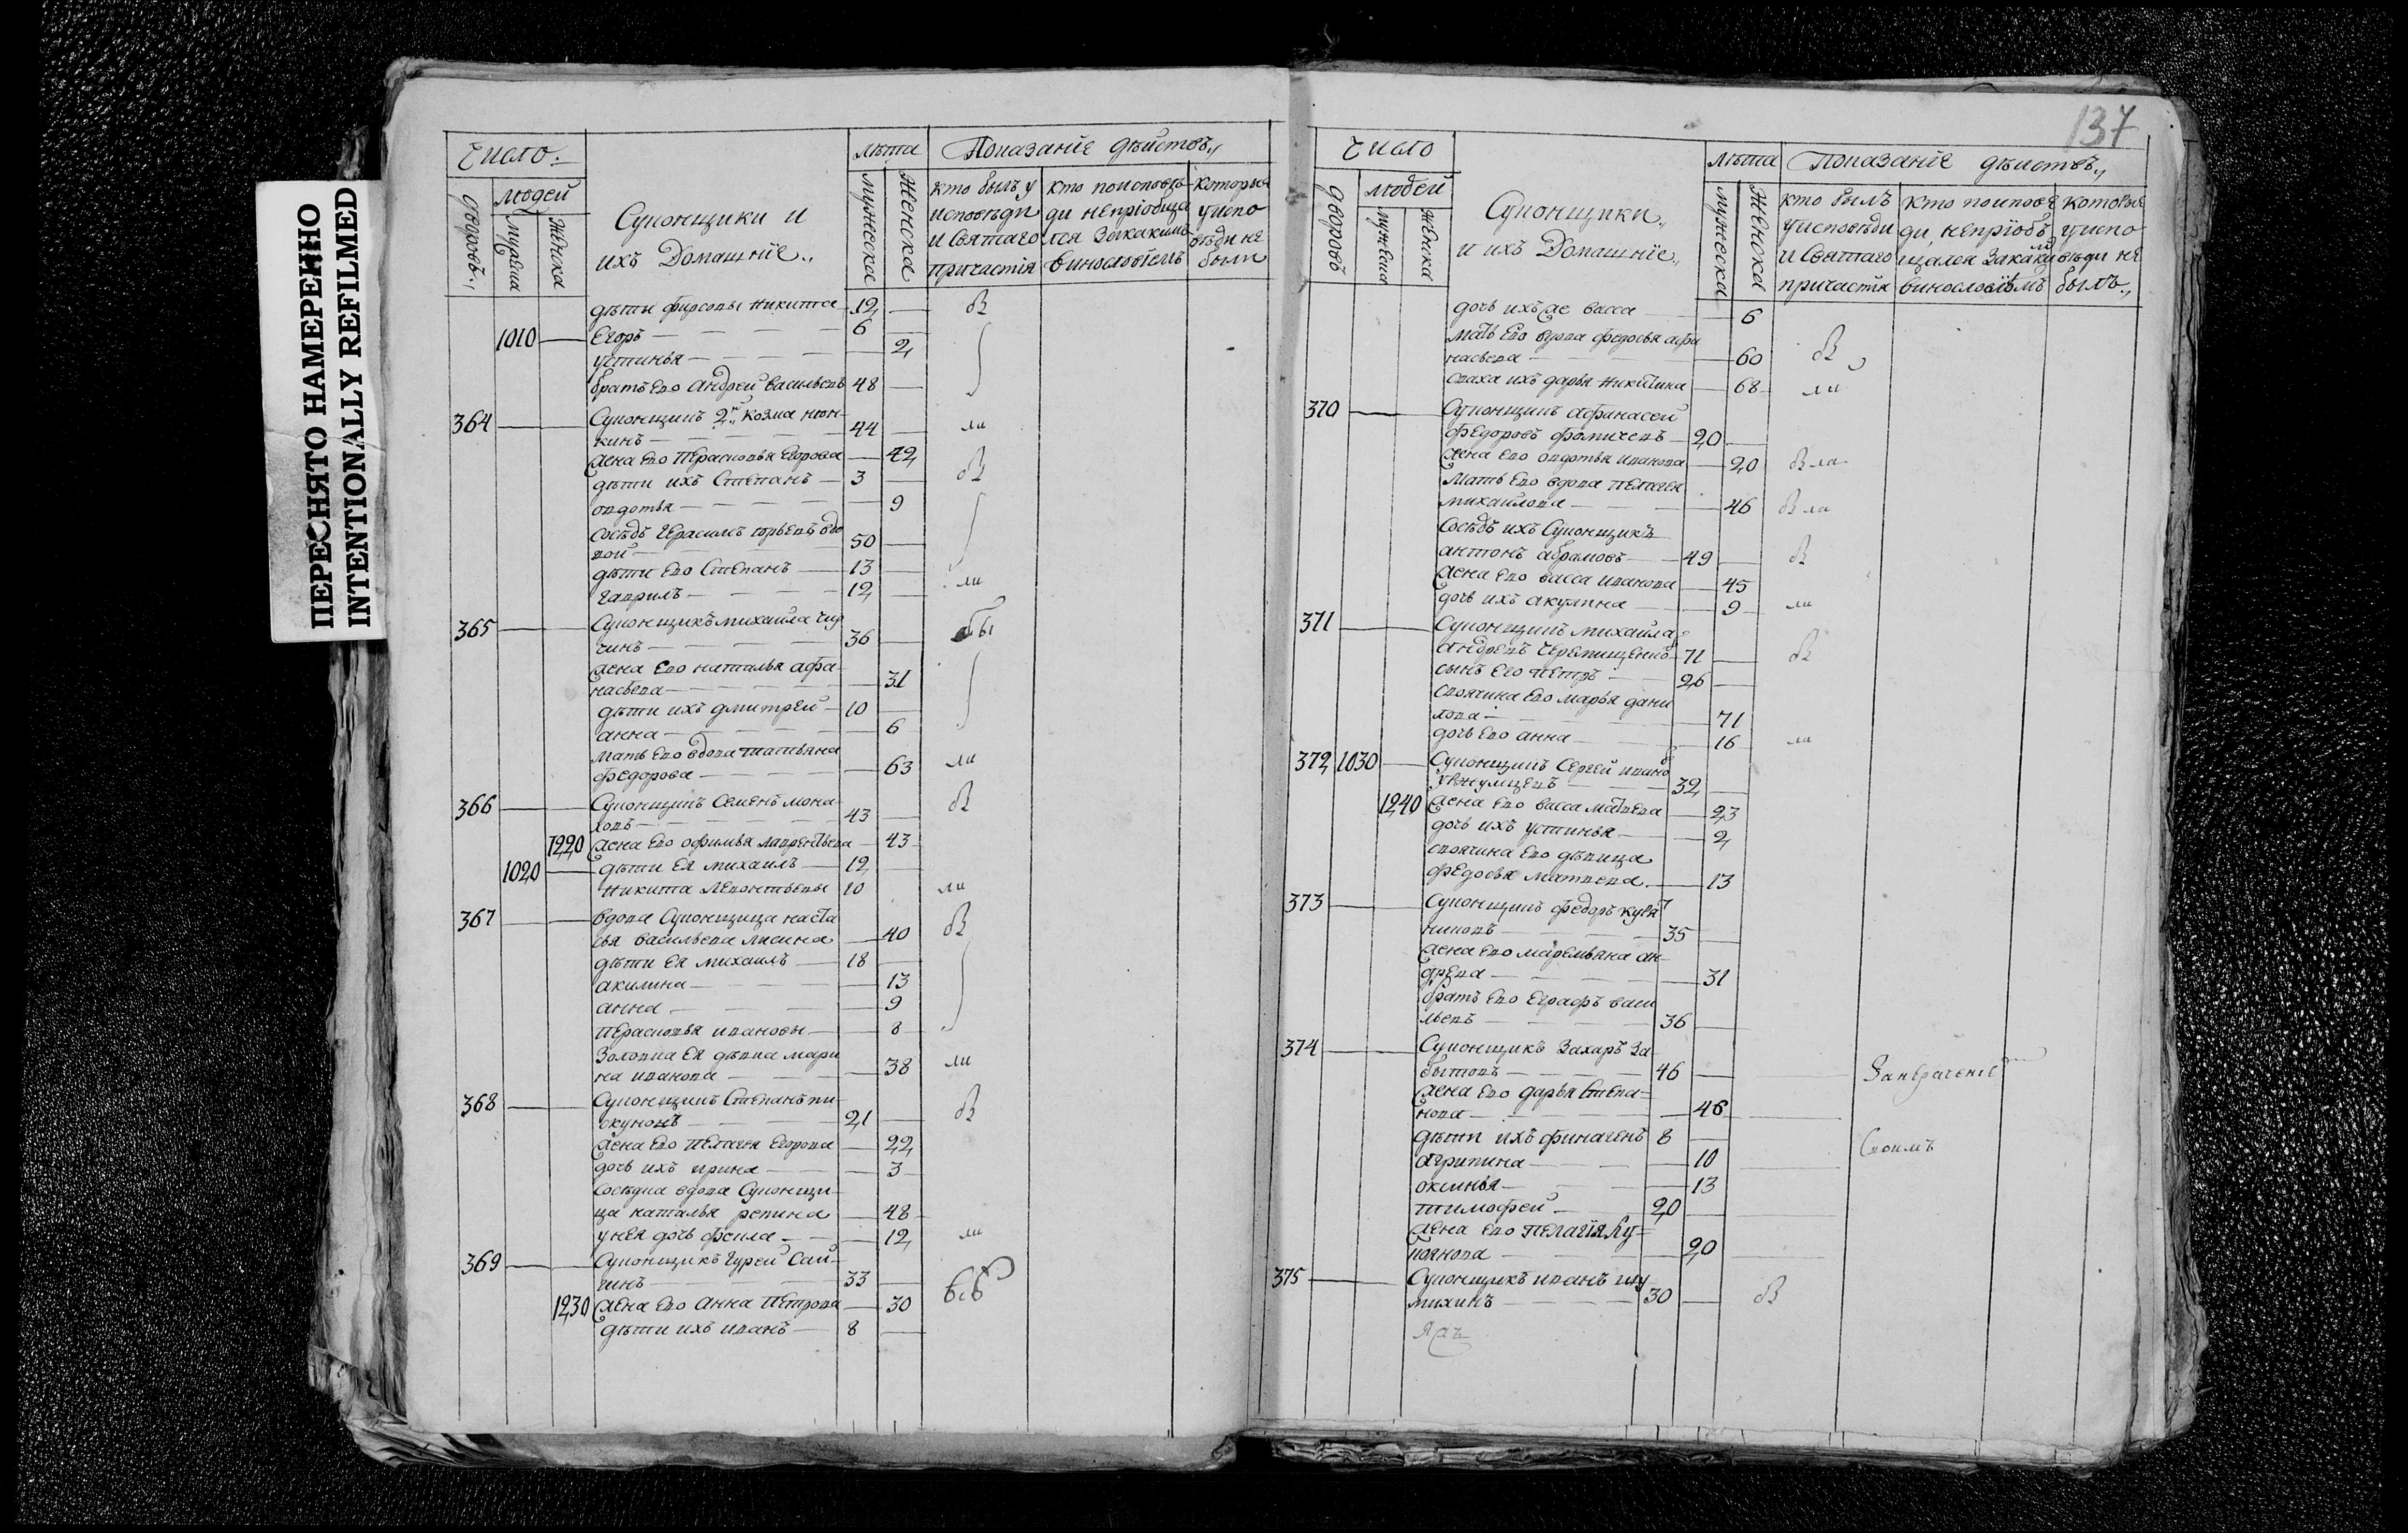 ПЕРЕСНЯТО НАМЕРЕННО
INTENTIONALLY REFILMED
Число.
Дворовъ
людей
мужеска
женска
Суконщики и
ихъ Домашніе
лѣта
мужеска
женска
Показаніе дѣиствъ
кто былъ у
исповѣди
и святаго
причастія
кто поисповѣ
ди непріобща
лся Закакимъ
винословіемъ
которые
уиспо
вѣди не
были
дѣти фирсовы Никита 12
1010 Егоръ 6
устинья 2
братъ Его Андрей васильевъ 48
364 Суконщикъ 2й козма нюн-
кинъ 44
жена Его Перасковья Егорова 42
дѣти ихъ Степанъ 3
овдотья 9
сосѣдъ Герасимъ юрьевъ вдо
вой 50
дѣти Его Степанъ 13
гаврилъ 12
365 Суконщикъ михаила чу
чинъ 36
жена Его наталья афа-
насьева 31
дѣти ихъ дмитрей 10
анна 6
мать Его вдова татьяна
федорова 63
366 Суконщикъ Семенъ мона-
ховъ 43
1220 жена Его офимья лаврентьева 43
1020 дѣти Ея михаилъ 12
никита Левонтьевы 10
367 вдова Суконщица наста
сья васильева лисина 40
дѣти Ея михаилъ 18
акилина 13
анна 9
Перасковья ивановы 8
Золовка Ея дѣвка мари
на иванова 38
368 Суконщикъ Степанъ пи-
скуновъ 21
жена Его Пелагея Егорова 22
дочь ихъ ирина 3
сосѣдка вдова Суконщи-
ца наталья репина 48
у нея дочь фекла 12
369 Суконщикъ гурей Сай-
гинъ 33
1230 жена Его Анна Петрова 30
дѣти ихъ иванъ 8
137
Число
Дворовъ
людей
мужеска
женска
Суконщики
и ихъ Домашніе
лѣта
мужеска
женска
Показаніе дѣиствъ
кто былъ
уисповѣди
и Святаго
причастія
кто поисповѣ
ди, непріобъ
щался Закаким
винословіемъ
которые
уиспо
вѣди не
былъ
дочь ихъ же васса 6
мать Его вдова федосья афа
насьева 60
сваха ихъ дарья никитина 68
370 Суконщикъ афанасей
федоровъ фомичевъ 20
жена Его овдотья иванова 20
мать Его вдова пелагея
михаилова 46
Сосѣдъ ихъ Суконщикъ
антонъ абрамовъ 49
жена Его васса иванова 45
дочь ихъ акулина 9
371 Суконщикъ михаила
андреевъ 71
сынъ Его Петръ 26
своячина Его марья дани
лова 71
дочь Его анна 16
372 1030 Суконщикъ Сергей ивановъ
32
1240 жена Его васса матвева 23
дочь ихъ устинья 2
своячина Его дѣвица
федосья матвева 13
373 Суконщикъ федоръ куля
никовъ 35
жена Его маремьяна ан-
древа 31
братъ Его Еграфъ васи
льевъ 36
374 Суконщикъ Захаръ За
бытовъ 46
жена Его дарья Степа-
нова 46
дѣти ихъ финагенъ 8
агрипина 10
оксинья 13
тимофей 20
жена Его Пелагія Лу-
20
375 Суконщикъ иванъ шу
михинъ 30